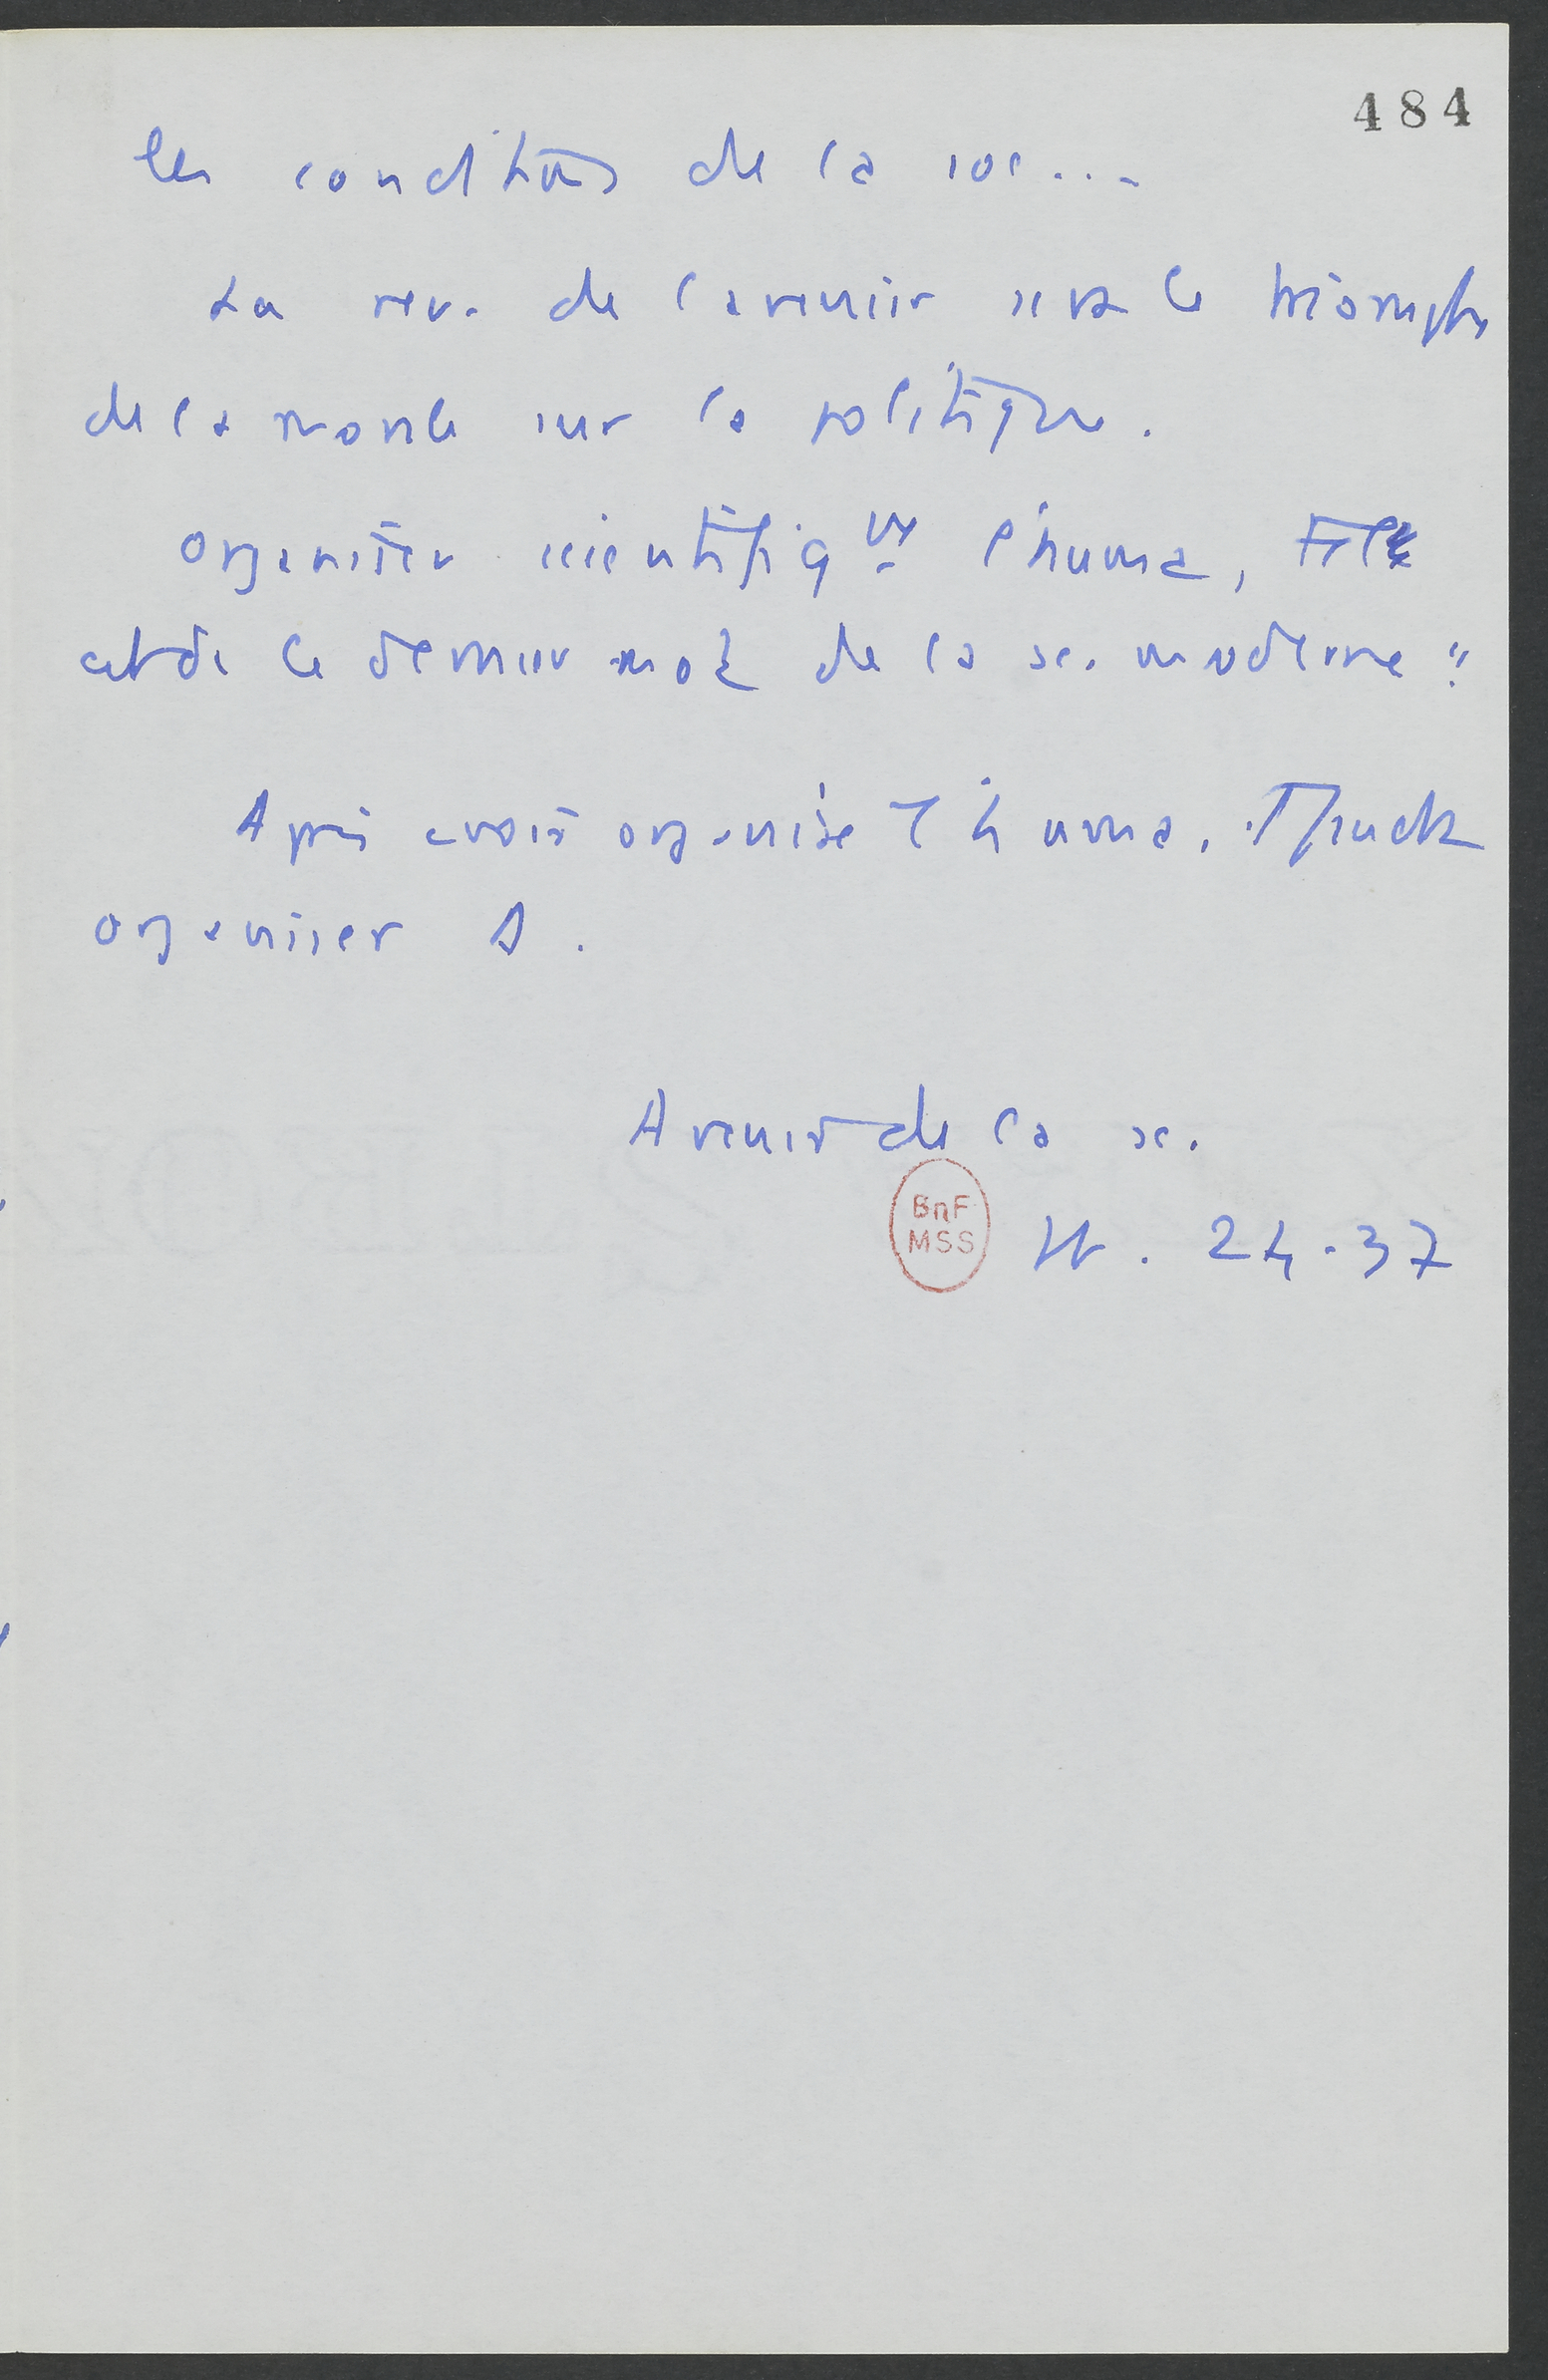 484
les conditions de la soc...
La rev. de l'avenir sera le triomphe
de la morale sur la politique.
Organiser scientifiqt l'huma,
est dc le dernier mot de la sc. moderne "
Après avoir organisé l'huma,
organiser D.
Avenir de la sc.
BnF
MSS
p. 24-37